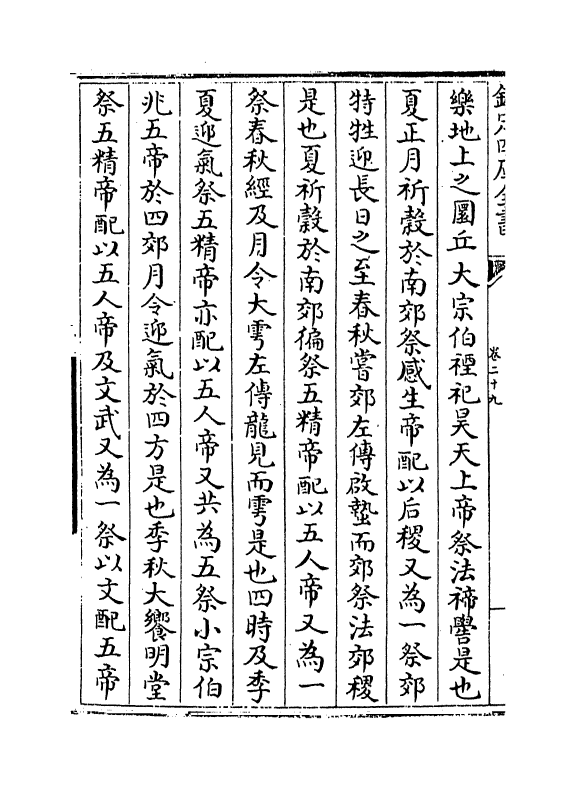 欽定四庫全書
卷二十九
樂地上之圜丘大宗伯禋祀昊天上帝祭法禘嚳是也
夏正月祈穀於南郊祭感生帝配以后稷又為一祭郊
特牲迎長日之至春秋嘗郊左傳啟蟄而郊祭法郊稷
是也夏祈穀於南郊徧祭五精帝配以五人帝又為一
祭春秋經及月令大雩左傳龍見而雩是也四時及季
夏迎氣祭五精帝亦配以五人帝又共為五祭小宗伯
兆五帝於四郊月令迎氣於四方是也季秋大饗明堂
祭五精帝配以五人帝及文武又為一祭以文配五帝